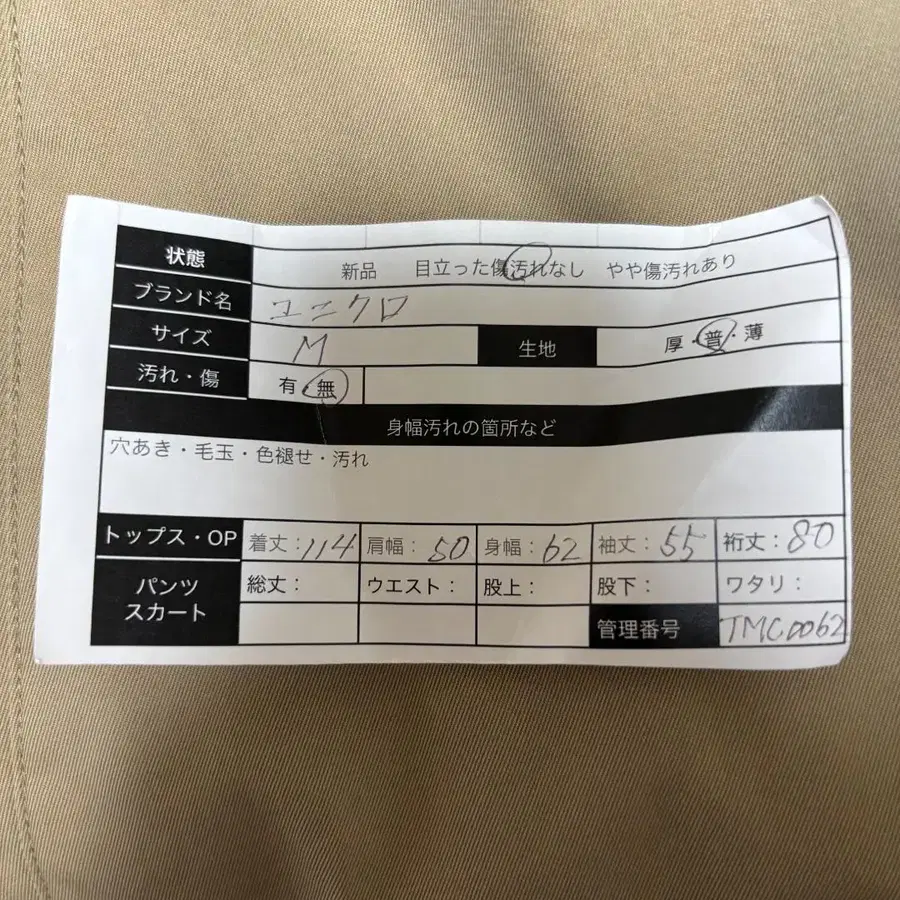 状態 新品 目立った傷汚れなし やや傷汚れあり
ブランド名 ユニクロ
サイズ M 生地 厚・普・薄
汚れ・傷 有・無
身幅汚れの箇所など
穴あき・毛玉・色褪せ・汚れ
トップス・OP 着丈:114 肩幅:50 身幅:62 袖丈:55 裄丈:80
パンツ 総丈: ウエスト: 股上: 股下: ワタリ:
スカート 管理番号 TMC0062